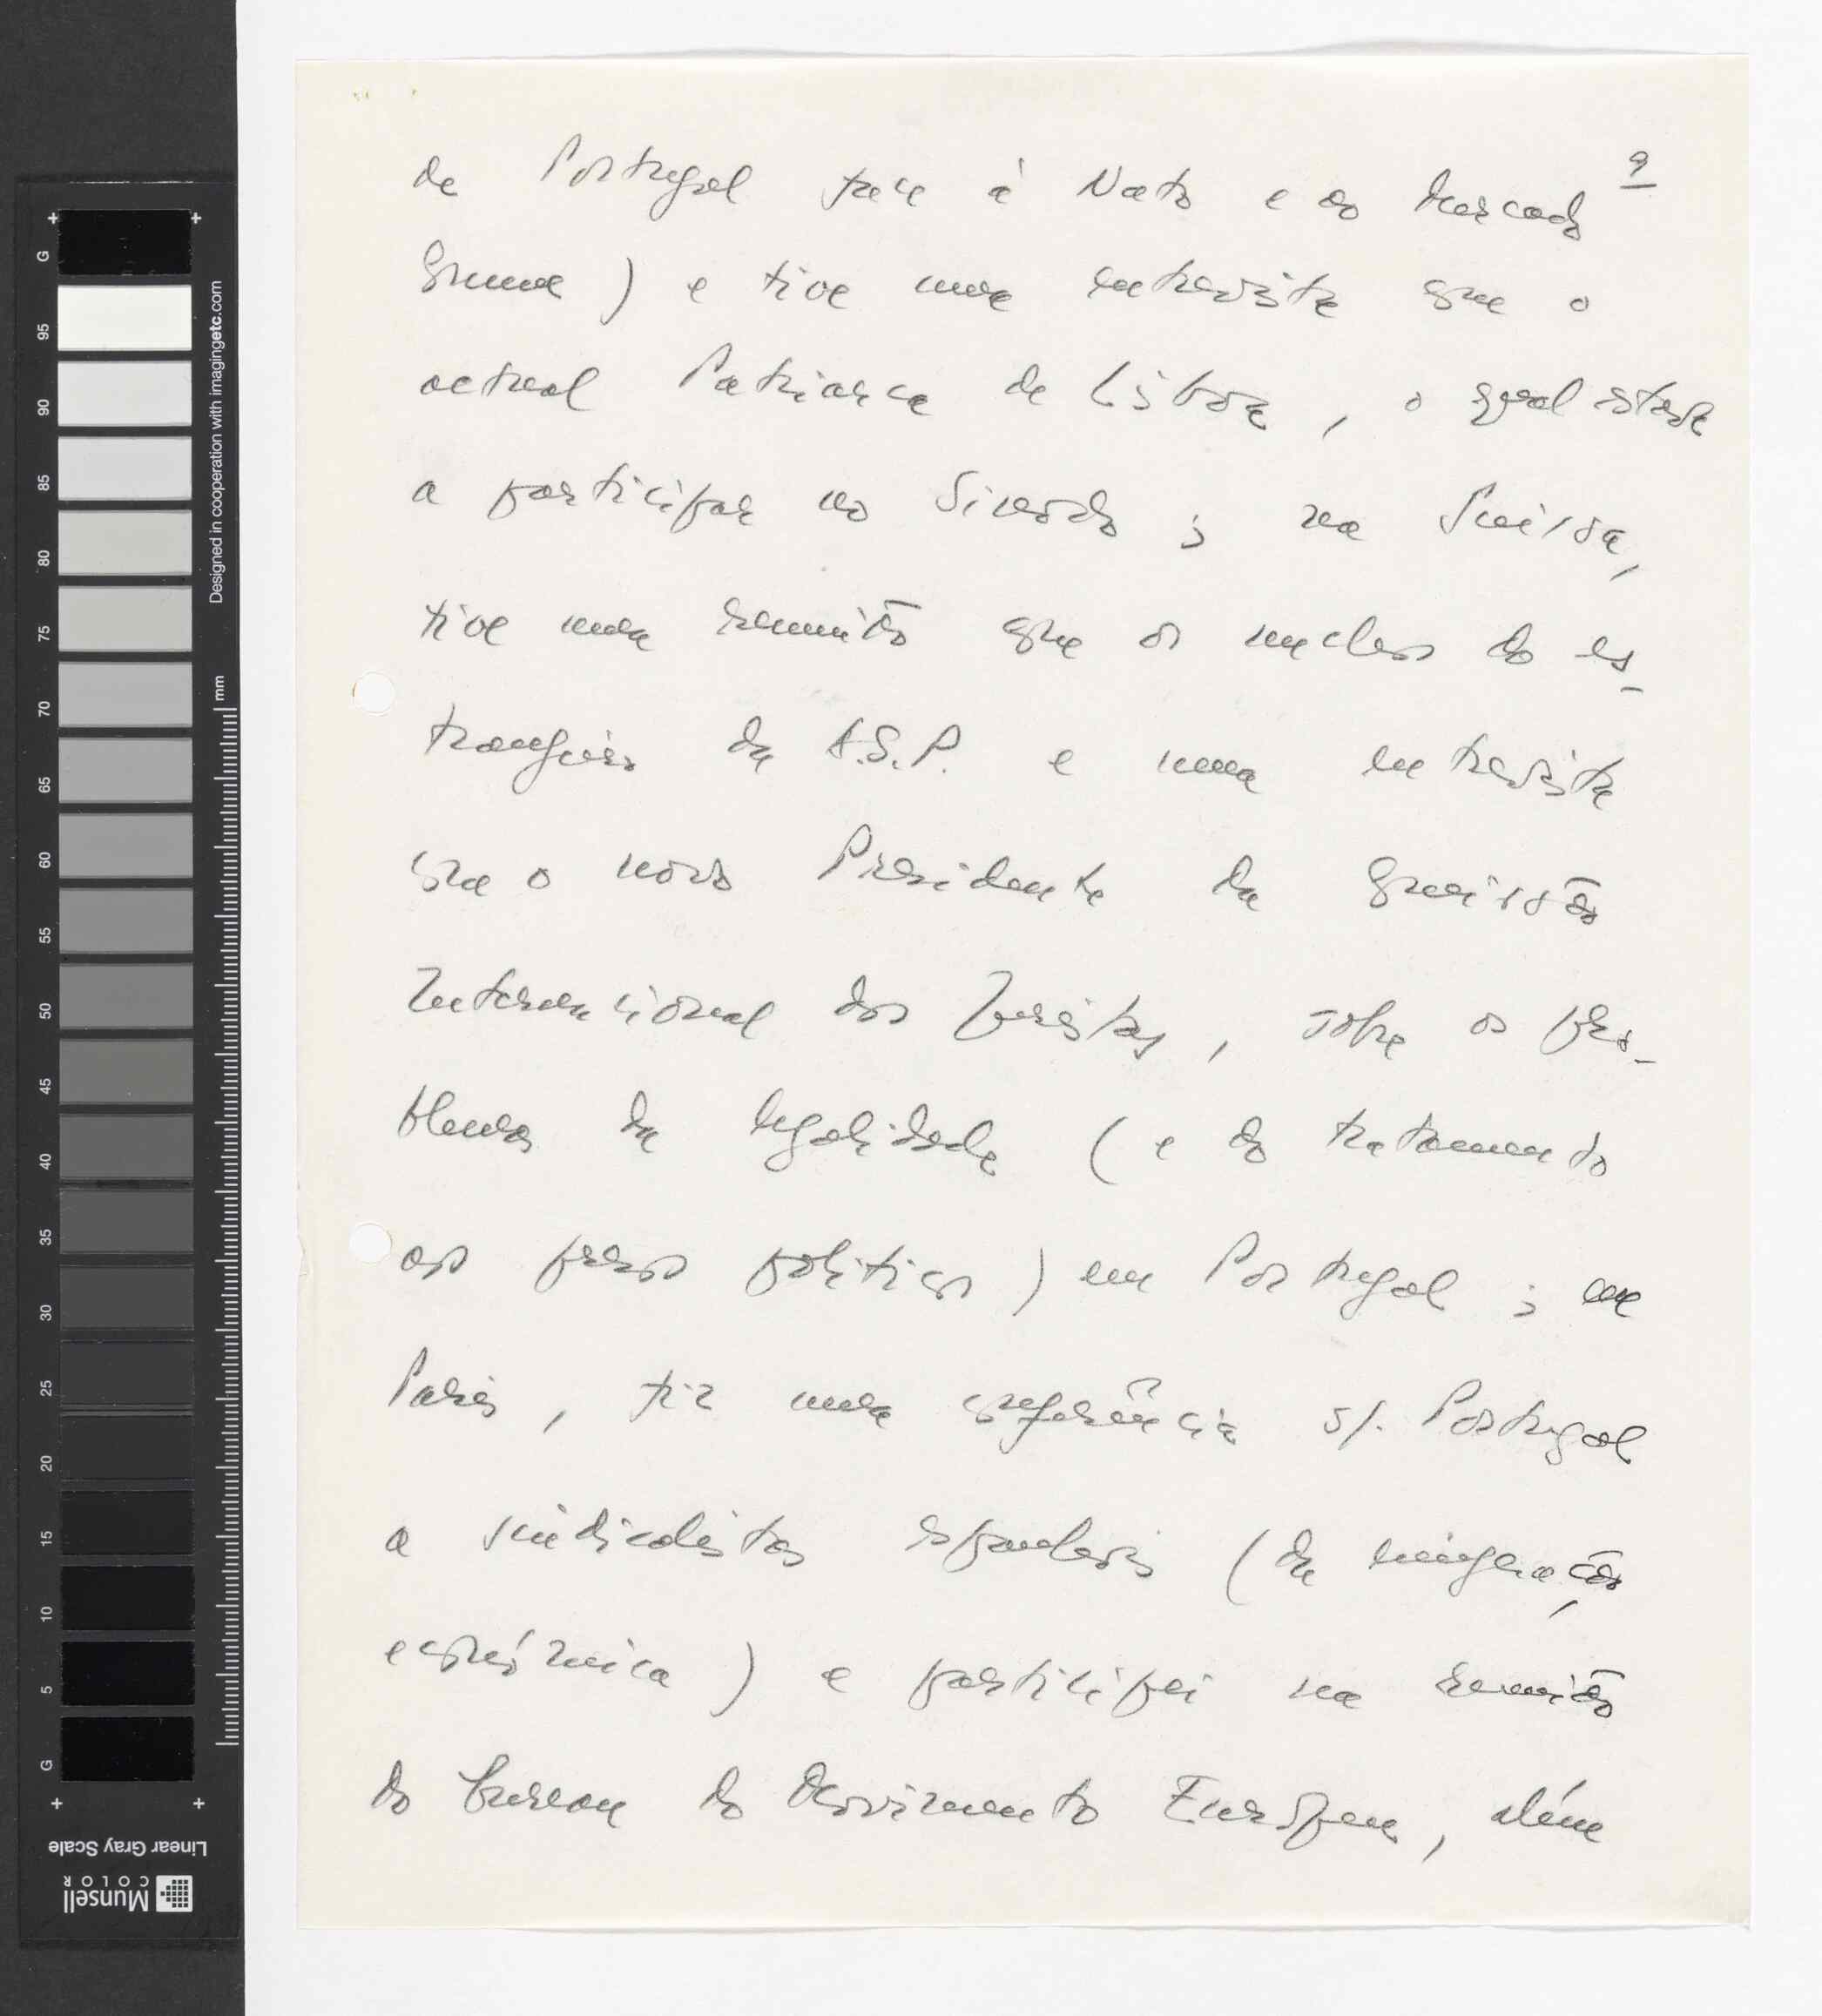 9
de Portugal face à Nato e ao Mercado
Comum) e tive uma entrevista com o
actual Patriarca de Lisboa, o qual estava
a participar no Sínodo; na Suissa,
tive uma reunião com os nucleos do es-
trangeiro da A.S.P. e uma entrevista
com o novo Presidente da Comissão
Internacional dos Juristas, sobre os pro-
blemas da legalidade (e do tratamento
aos presos politicos) em Portugal; em
Paris, fiz uma conferência s/. Portugal
a sindicalistas espanhois (da emigração
económica) e participei na reunião
do bureau do Movimento Europeu, além
G
95
90
85
80
75
70
65
60
55
50
45
40
35
30
25
20
15
10
5
G
mm
Designed in cooperation with imagingetc.com
Linear Gray Scale
Munsell
COLOR